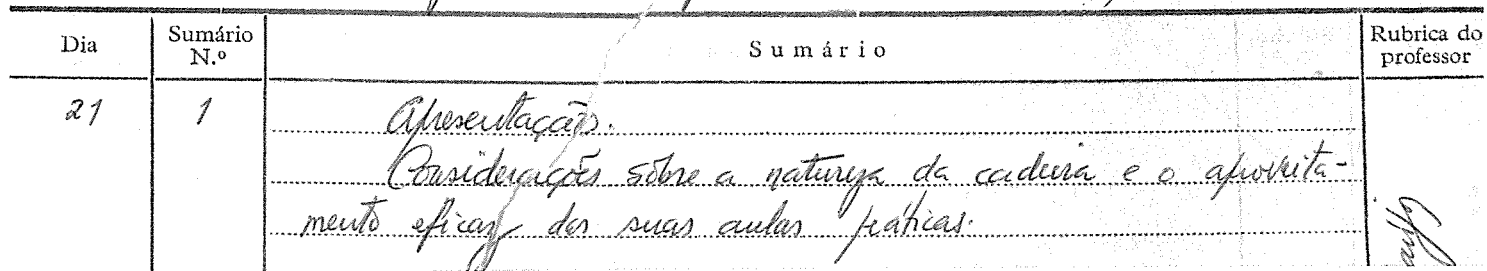 Dia Sumário N.º Sumário Rubrica do professor
21 1 Apresentação.
Considerações sôbre a natureza da cadeira e o aproveita-
mento eficaz das suas aulas práticas.